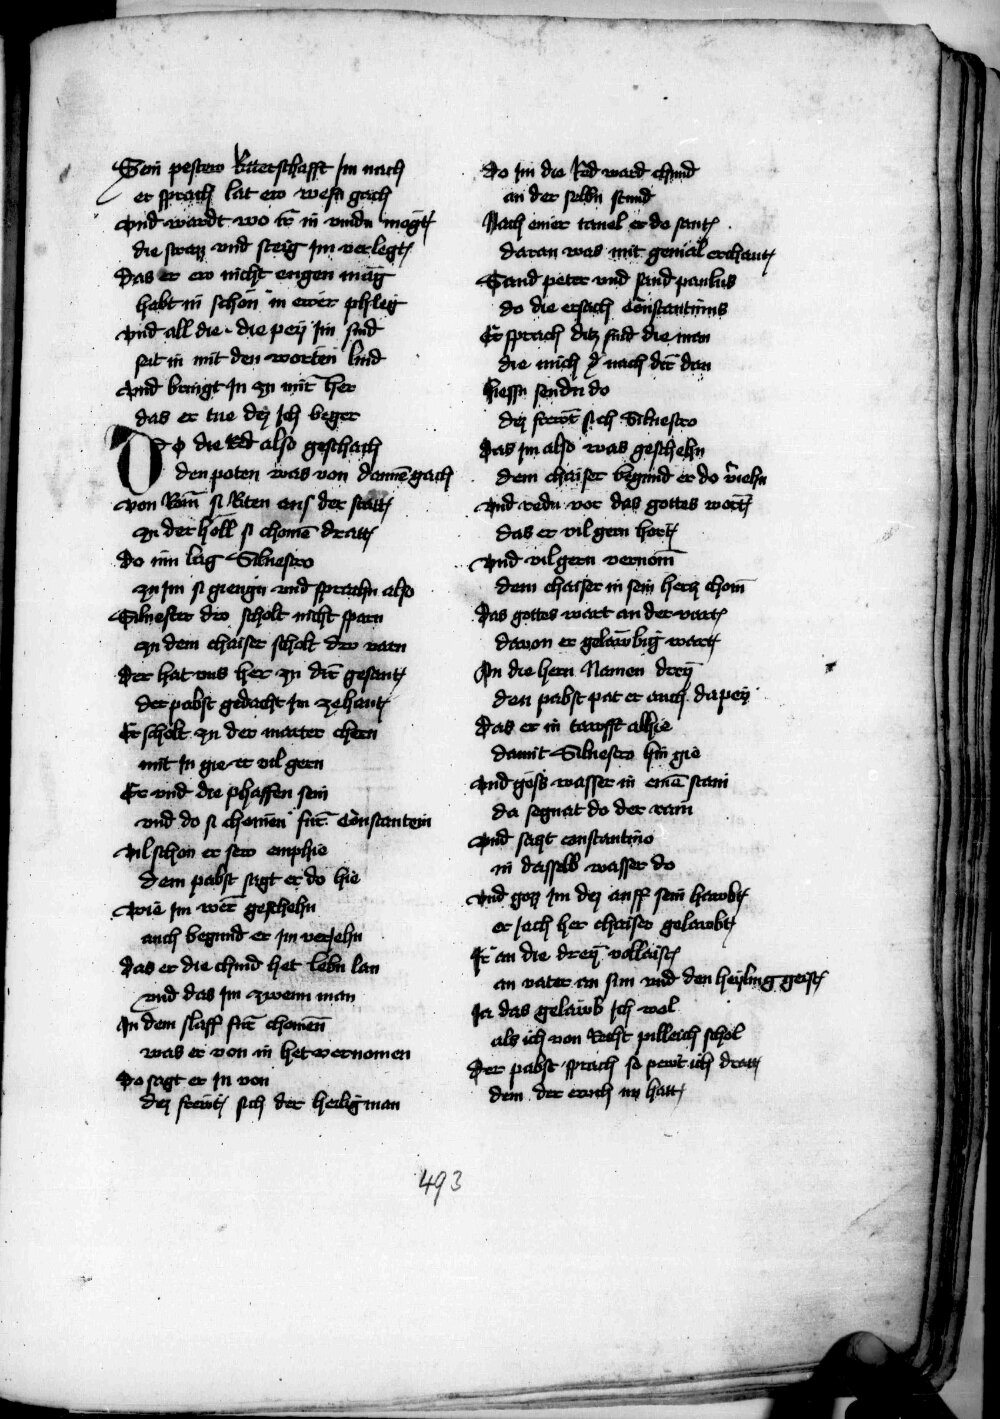 Sein pesten Ritterschafft Im nach
er sprach lat ew wesn gach
vnd wardt wo ir in vindn mogt
die strazz vnd steig Im verlegt
das er ew nicht engen mag
habt in schon in ewer phleg
vnd all die die pey Im sind
seit in mit den worten lind
vnd bringt In zu mir her
das er tue dez Ich beger
Do die Red also geschach
den poten was von danne gach
von Rom si Riten aus der statt
zu der holl si chomen dratt
do inn lag Siluestro
zu Im si giengn vnd sprachn also
Siluester dw scholt nicht sparn
zu dem chaiser scholt dw varn
der hat vns her zu dir gesant
der pabst gedacht Im zehant
Er scholt zu der marter chern
mit In gie er vil gern
Er vnd die phaffen sein
vnd do si chomen fur Constantein
vil schon er sew emphie
dem pabst sagt er do hie
wie Im wer geschehn
auch begund er Im verjehn
das er die chind het lebn lan
vnd das Im zwein man
In dem slaff fur chomen
was er von in het vernomen
do sagt er In von
dez frewt sich der heilig man
do Im die Red ward chund
an der selbn stund
Nach einer tauel er do sant
daran was mit gemal erchant
Sand peter vnd sand paulus
do die ersach Constantinus
Er sprach ditz sind die man
die mich nach dir dan
hiessn sendn do
dez frewt sich Siluestro
das Im also was geschehn
dem chaiser begund er do
vnd redn vor das gottes wort
das er vil gern hort
vnd vil gern vernom
dem chaiser in sein hertz chom
das gottes wart an der vart
dauon er gelaubig wart
An die hern Namen drey
den pabst pat er auch dapey
das er in tawfft alhie
damit Siluestro hin gie
vnd goss wasser in eine stain
da segnat do der rain
vnd satzt constantino
in dasselb wasser do
vnd gozz Im dez auff sein hawbt
er Jach her chaiser gelawbt
Ir an die drey vollaist
an vater an sun vnd den heyling geist
Ja das gelaub Ich wol
als ich von Recht pilleich schol
der pabst sprach so pewt ich dratt
dem der ewch nu hatt
493